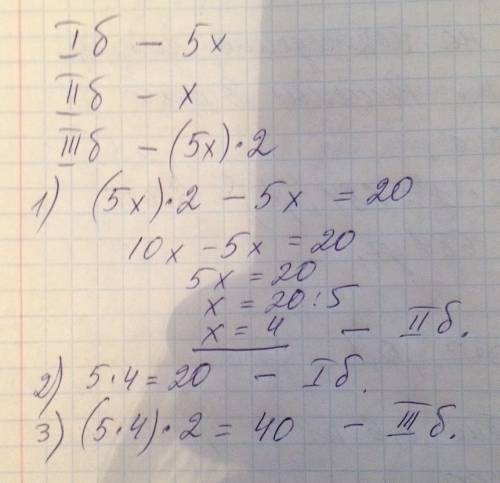 I б – 5x
II б – x
III б – (5x)·2
1) (5x)·2 – 5x = 20
10x – 5x = 20
5x = 20
x = 20:5
x = 4 – II б.
2) 5·4 = 20 – I б.
3) (5·4)·2 = 40 – III б.